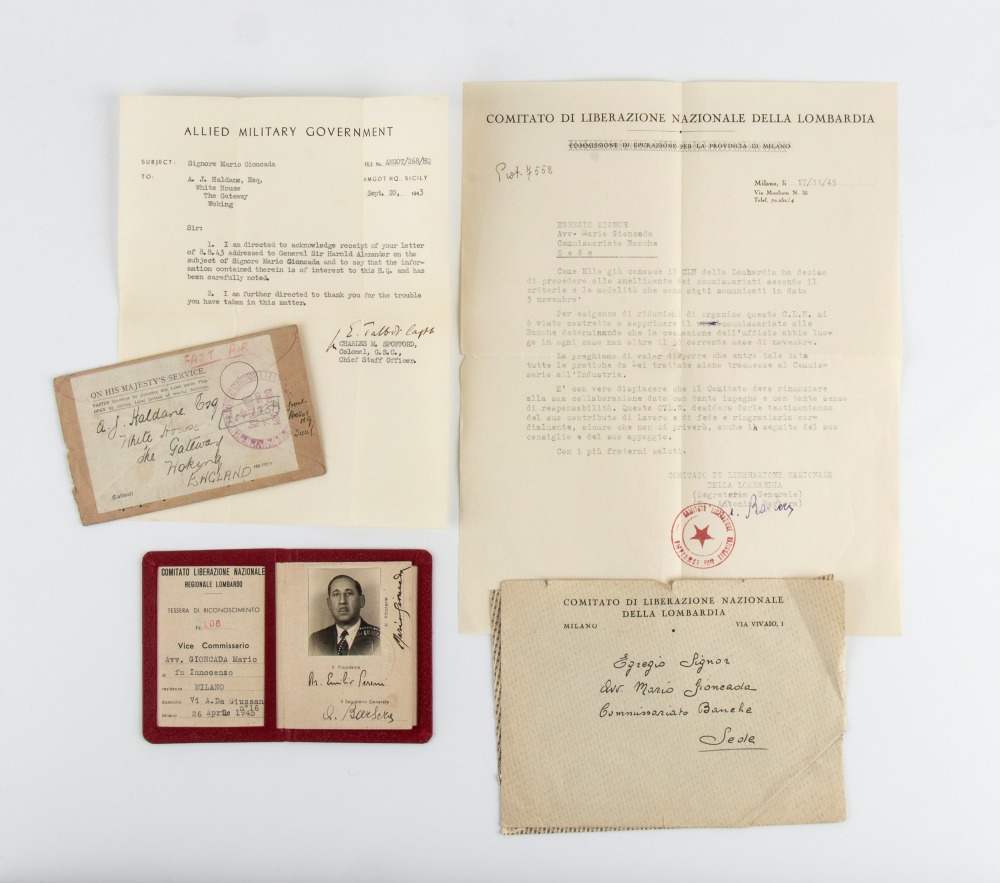 ALLIED MILITARY GOVERNMENT
SUBJECT: Signore Mario Gioncada
FILE No. AMGOT/268/HQ
TO: A. J. Haldane, Esq,
AMGOT HQ., SICILY
White House
The Gateway
Sept. 20, 1943
Woking
Sir:
1. I am directed to acknowledge receipt of your letter
of 8.8.43 addressed to General Sir Harold Alexander on the
subject of Signore Mario Gioncada and to say that the infor-
mation contained therein is of interest to this H.Q. and has
been carefully noted.
2. I am further directed to thank you for the trouble
you have taken in this matter.
E. Talbot Capt
CHARLES M. SPOFFORD,
Colonel, G.S.C.,
Chief Staff Officer.
ON HIS MAJESTY'S SERVICE.
A. J. Haldane Esq
White House
The Gateway
Woking
ENGLAND
COMITATO DI LIBERAZIONE NAZIONALE DELLA LOMBARDIA
COMMISSIONE DI EPURAZIONE PER LA PROVINCIA DI MILANO
Prot. 7558
Milano, li 17/11/45
Via Monforte N. 36
EGREGIO SIGNOR
Avv. Mario Gioncada
Commissariato Banche
Sede
Come Ella già conosce il CLN della Lombardia ha deciso
di procedere allo snellimento dei commissariati secondo il
criterio e le modalità che sono stati comunicati in data
3 novembre
Per esigenze di riduzioni di organico questo C.L.N. si
è visto costretto a sopprimere il commissariato alle
Banche determinando che la cessazione dell'ufficio abbia luo-
go in ogni caso non oltre il 30 corrente mese di novembre.
La preghiamo di voler disporre che entro tale data
tutte le pratiche da Lei trattate siano trasmesse al Commis-
sario all'Industria.
E' con vero dispiacere che il Comitato deve rinunciare
alla sua collaborazione data con tanto impegno e con tanto senso
di responsabilità. Questo CVL.N. desidera darle testimonianza
del suo contributo di lavoro e di fede e ringraziarLa cor-
dialmente, sicuro che non ci priverà, anche in seguito del suo
consiglio e del suo appoggio.
Con i più fraterni saluti.
COMITATO DI LIBERAZIONE NAZIONALE
DELLA LOMBARDIA
(Segreteria Generale)
COMITATO LIBERAZIONE NAZIONALE
REGIONALE LOMBARDO
TESSERA DI RICONOSCIMENTO
N. 108
Vice Commissario
Avv. GIONCADA Mario
di fu Innocenzo
residenza MILANO
domicilio Vi A.Da Giussan
n°16
Milano 26 Aprile 1945
Il titolare
Mario Gioncada
Il Presidente
Emilio Sereni
Il Segretario Generale
COMITATO DI LIBERAZIONE NAZIONALE
DELLA LOMBARDIA
MILANO VIA VIVAIO, 1
Egregio Signor
Avv. Mario Gioncada
Commissariato Banche
Sede